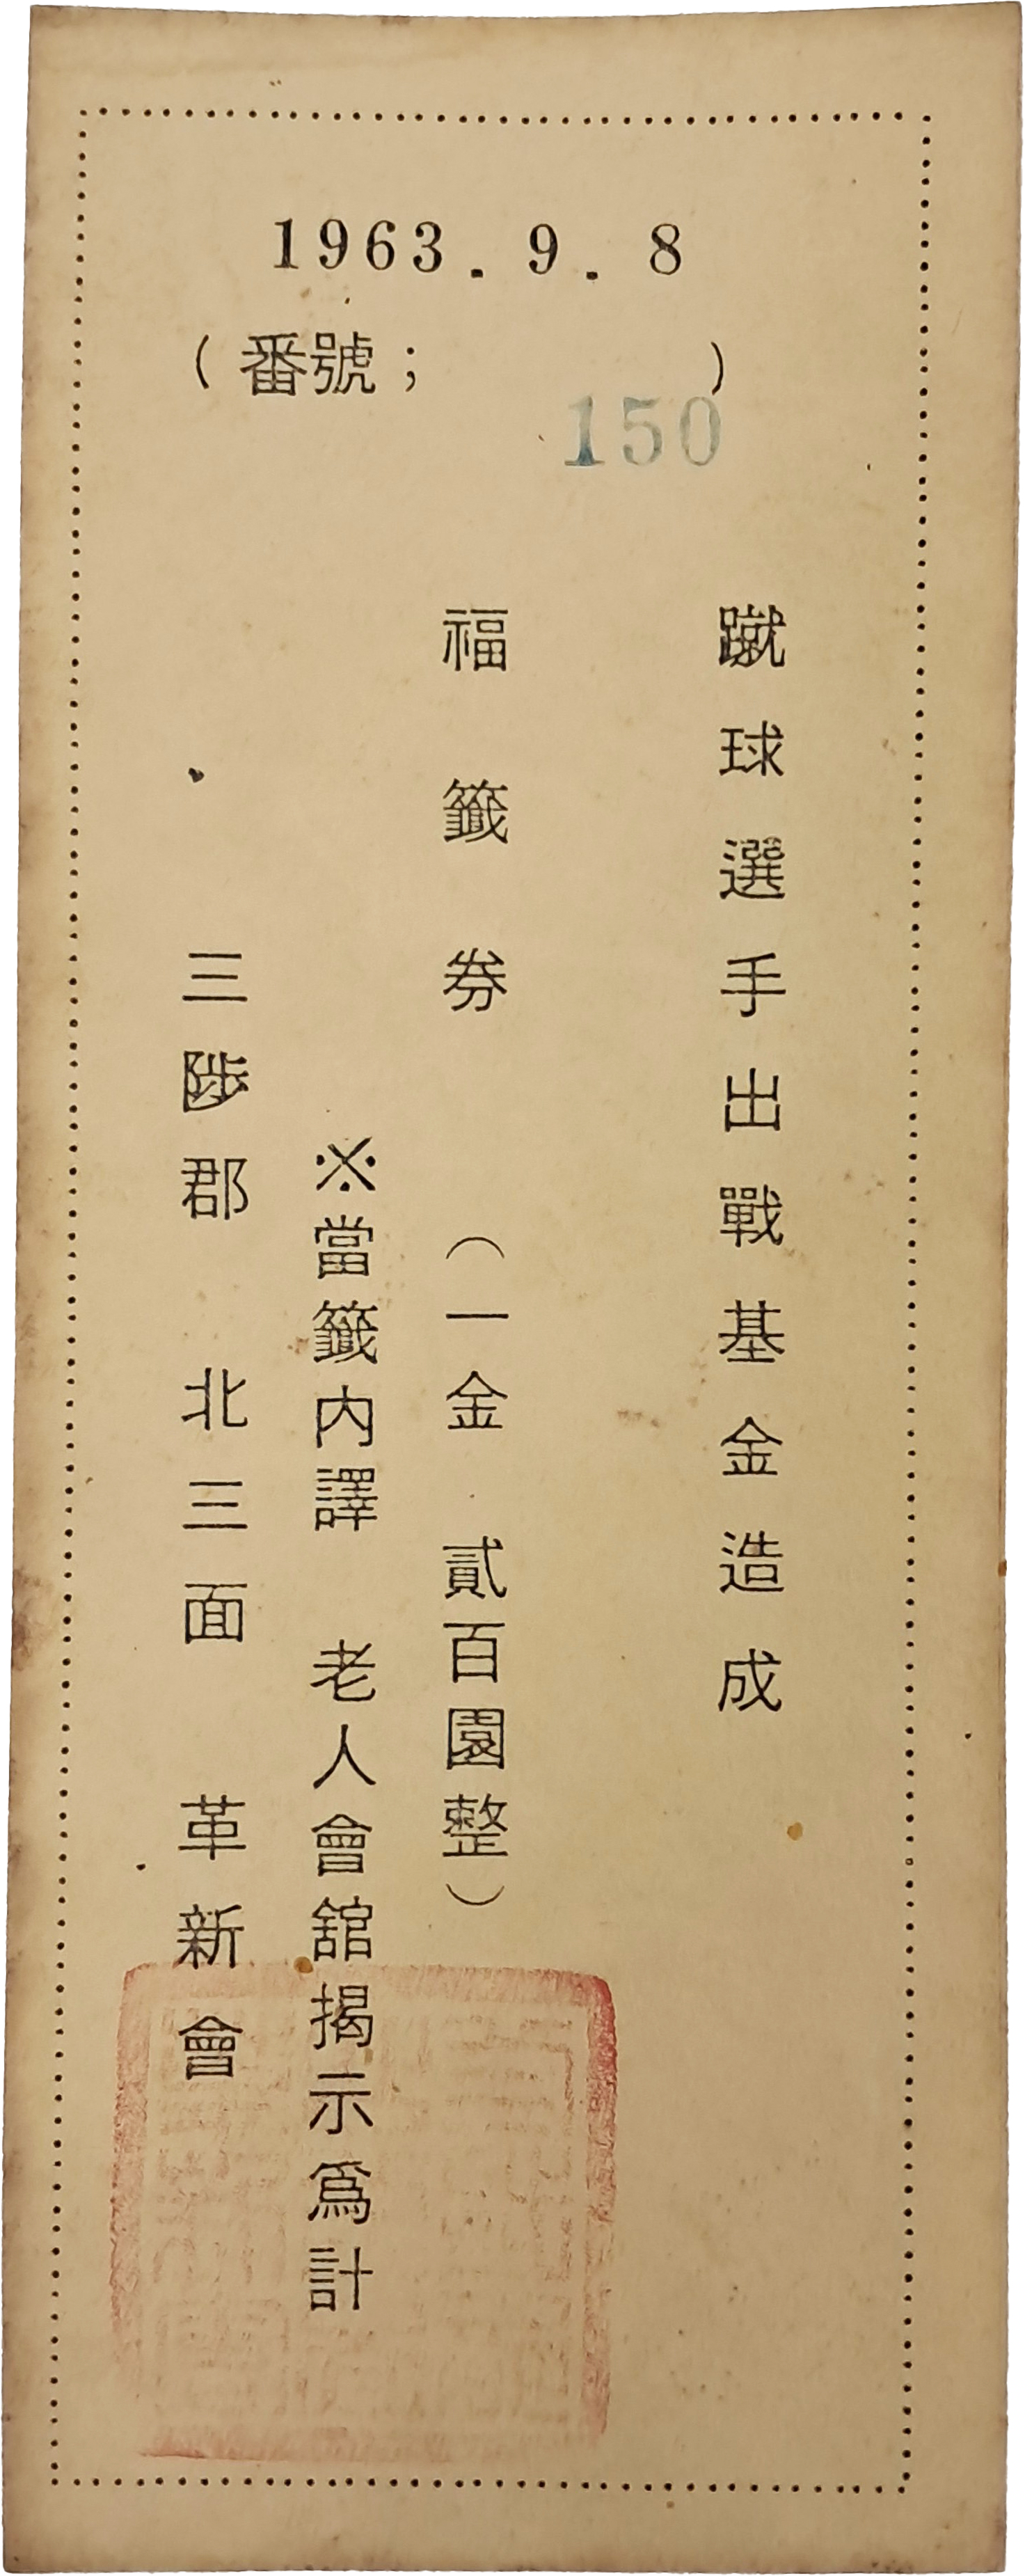 1963. 9. 8
(番號; )
150
蹴球選手出戰基金造成
福籤券 (一金 貳百園整)
※當籤內譯 老人會舘揭示爲計
三陟郡 北三面 革新會